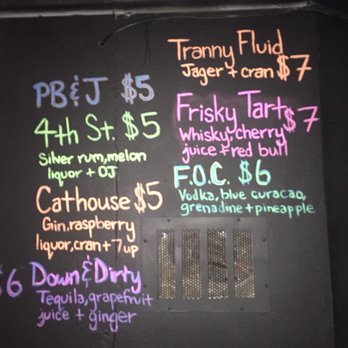 PB&J $5
4th St. $5
Silver rum, melon
liquor + OJ
Cathouse $5
Gin, raspberry
liquor, cran + 7up
$6 Down & Dirty
Tequila, grapefruit
juice + ginger
Tranny Fluid
Jager + cran $7
Frisky Tart $7
Whisky, cherry
juice + red bull
F.O.C. $6
Vodka, blue curacao,
grenadine + pineapple